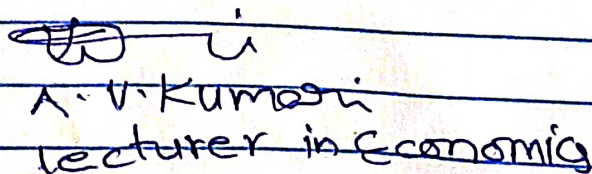 A. V. Kumari
Lecturer in Economics